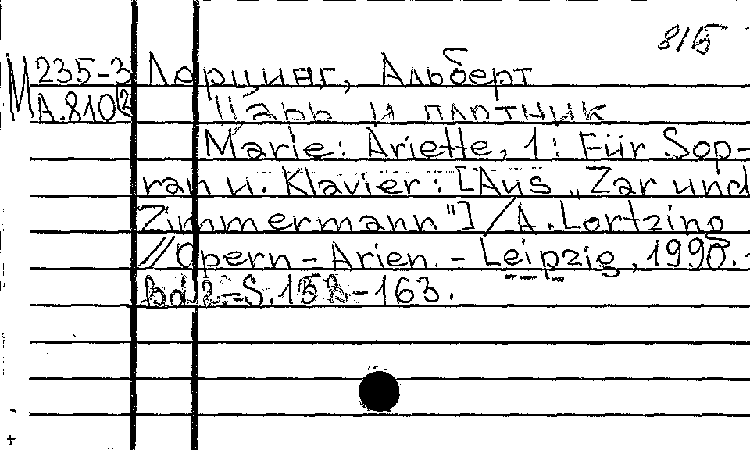 815
М 235-3 Лорцинг, Альберт
А.810 2 Царь и плотник
Marie: Ariette, 1: Für Sop-
ran u. Klavier: [Aus „Zar und
Zimmermann"] / A. Lortzing
// Opern-Arien. - Leipzig, 1990.-
Bd 2.-S.158-163.